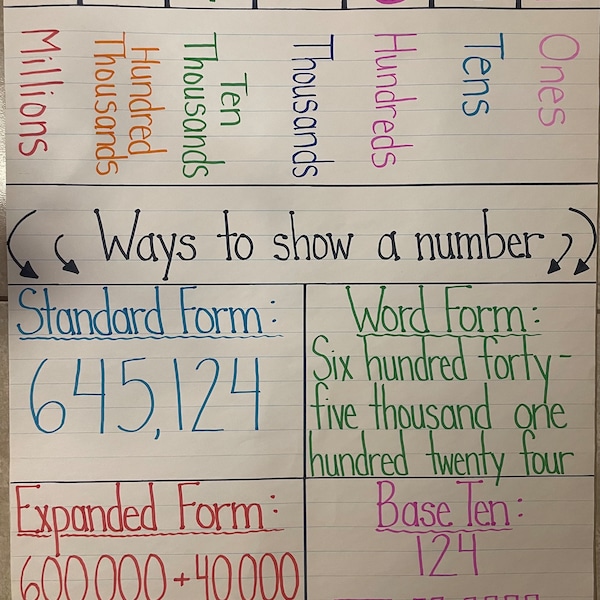 Millions
Hundred
Thousands
Ten
Thousands
Thousands
Hundreds
Tens
Ones
Ways to show a number
Standard Form:
645,124
Word Form:
Six hundred forty-
five thousand one
hundred twenty four
Expanded Form:
600000+40000
Base Ten:
124